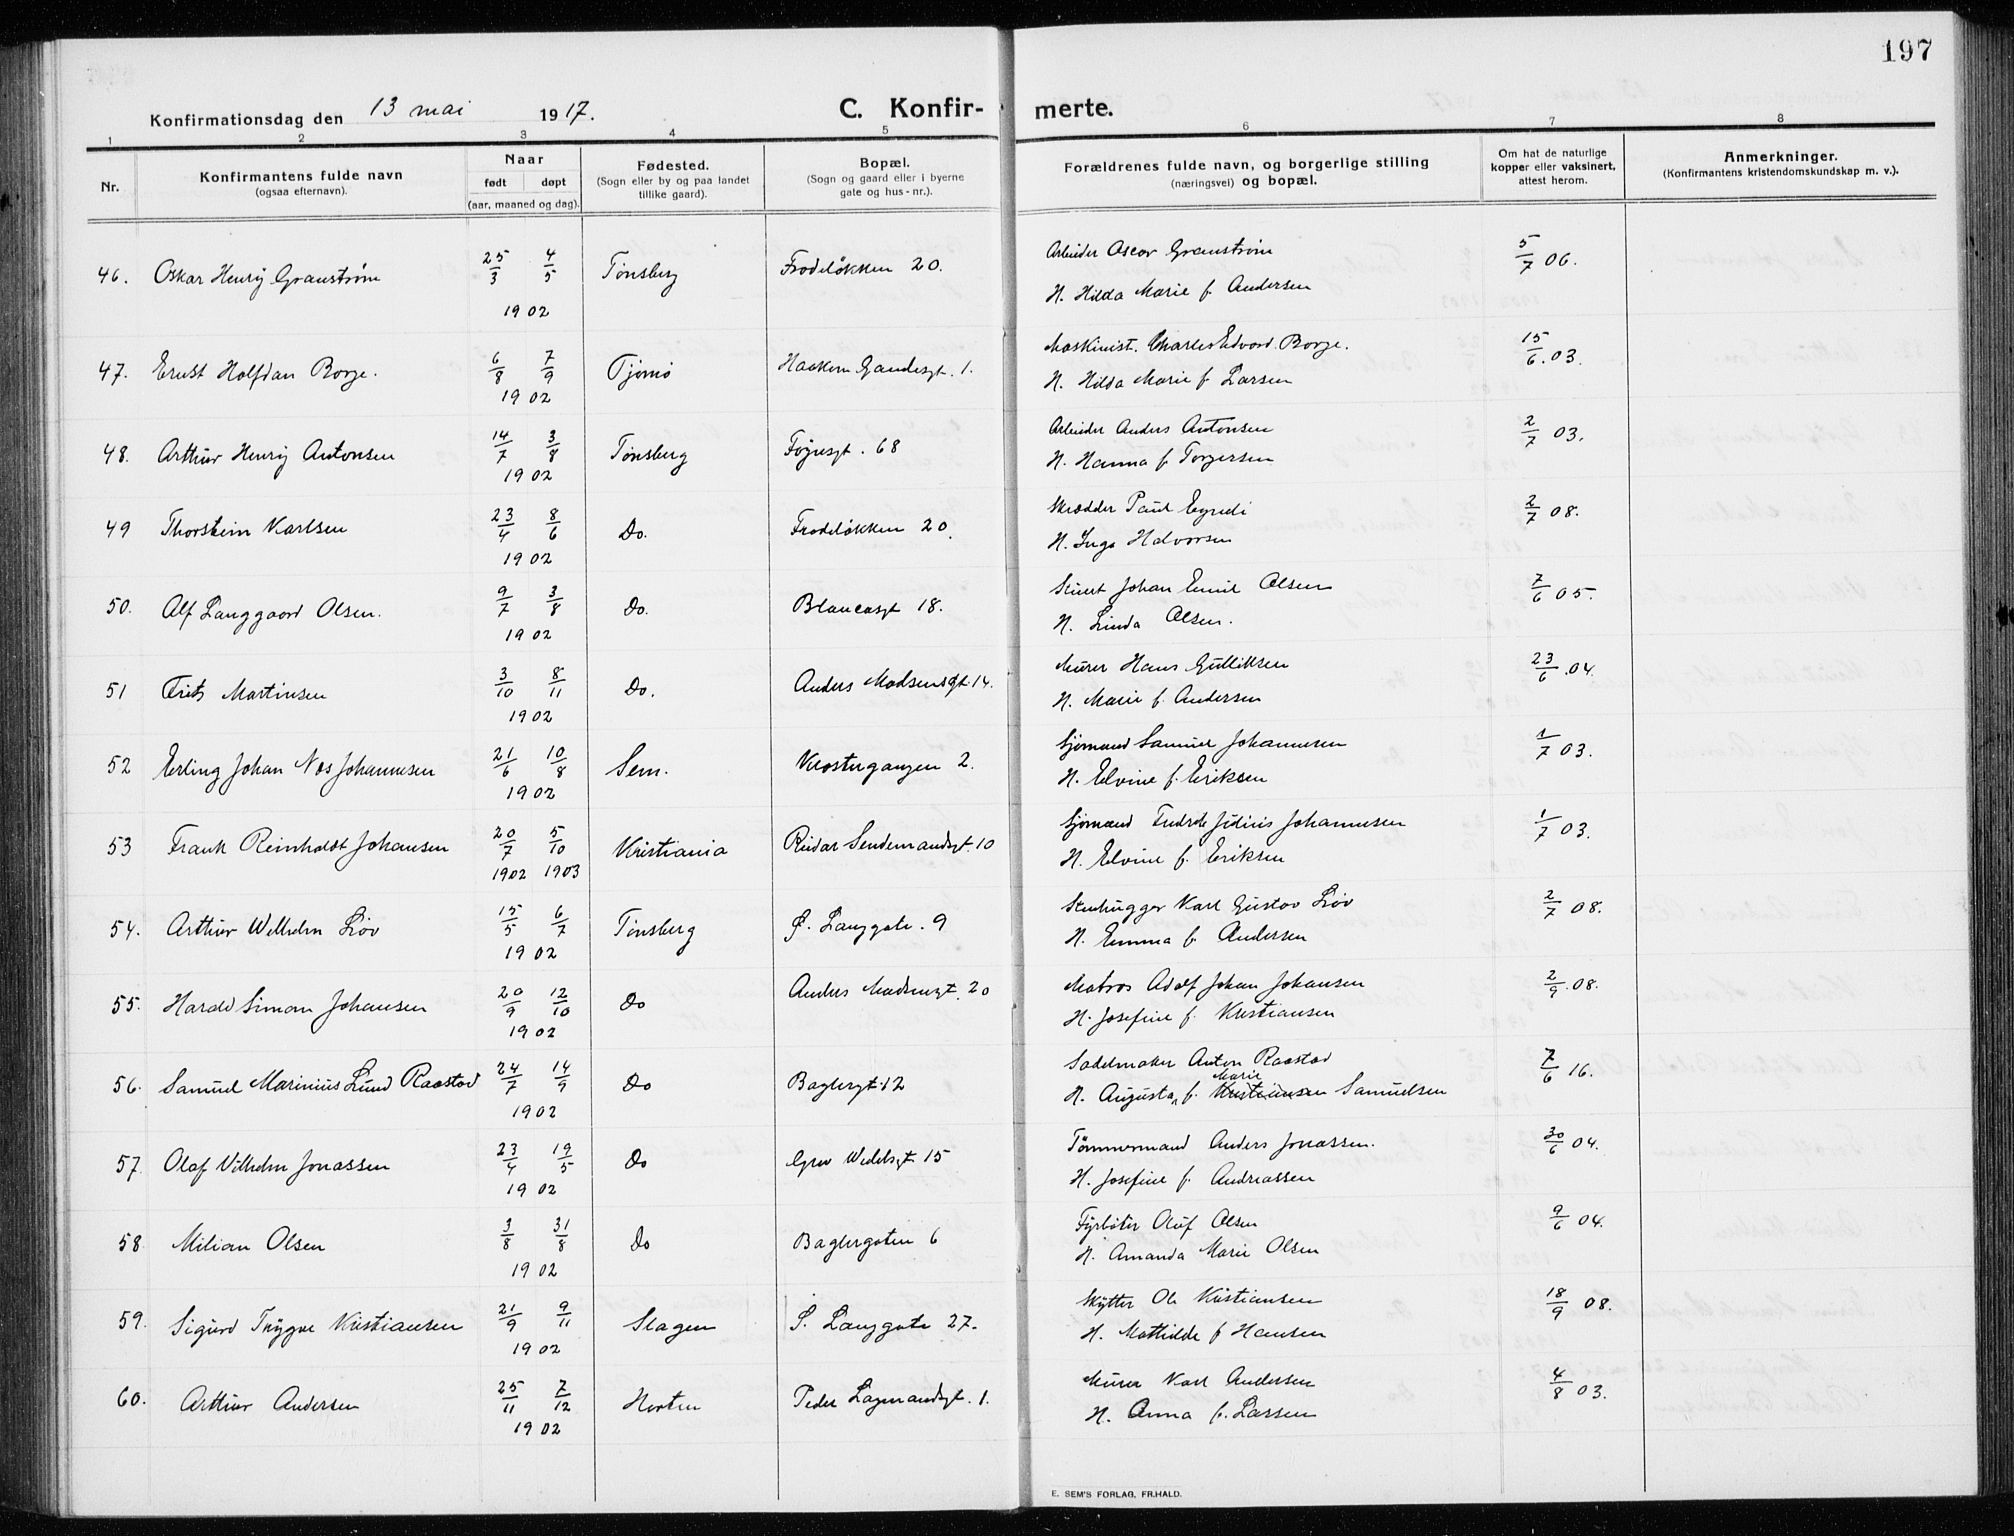 197
Konfirmationsdag den 13 mai 1917.
C. Konfirmerte.
1 2 3 4 5 6 7 8
Nr.
Konfirmantens fulde navn
(ogsaa efternavn).
Naar
født døpt
(aar, maaned og dag).
Fødested.
(Sogn eller by og paa landet
tillike gaard).
Bopæl.
(Sogn og gaard eller i byerne
gate og hus-nr.).
Forældrenes fulde navn, og borgerlige stilling
(næringsvei) og bopæl.
Om hat de naturlige
kopper eller vaksinert,
attest herom.
Anmerkninger.
(Konfirmantens kristendomskundskap m. v.).
46. Oskar Henrij Granstrøm 25/3 4/5 1902 Tønsberg Frodeløkken 20. Arbeider Oscar Granstrøm 5/7 06.
H. Hilda Marie f. Andersen
47. Ernst Halfdan Borge. 6/8 7/9 1902 Tjømø Haakon Gamlesgt. 1. Maskinist. Charles Edvard Borge. 15/6. 03.
H. Hilda Marie f. Larsen
48. Arthur Henrij Antonsen 14/7 3/8 1902 Tønsberg Føynsgt. 68 Arbeider Anders Antonsen 2/7 03.
H. Hanna f. Torgersen
49 Thorstein Karlsen 23/4 8/6 1902 Do. Frodeløkken 20. Skrædder Paul 2/7 08.
H. Inga Halvorsen
50. Alf Langgaard Olsen. 9/7 3/8 1902 Do. Blancasgt 18. Stuert Johan Emil Olsen 7/6 05.
H. Linda Olsen.
51 Frits Martinsen 3/10 8/11 1902 Do. Anders Madsensgt. 14. Murer Hans Gulliksen 23/6. 04.
H. Marie f. Andersen
52 Erling Johan Næs Johannesen 21/6 10/8 1902 Sem. Klostergangen 2. Sjømand Samuel Johannesen 1/7 03.
H. Elvine f. Eriksen
53 Frank Reinholdt Johansen 20/7 5/10 1902 1903 Kristiania Reidar Sendemandsgt. 10 Sjømand Fredrik Julius Johannesen 1/7 03.
H. Elvine f. Eriksen
54. Arthur Wilhelm Løv 15/5 6/7 1902 Tønsberg Ø. Langgate. 9 Stenhugger Karl Gustav Løv 2/7 08.
H. Emma f. Andersen
55. Harald Simon Johansen 20/9 12/10 1902 Do Anders Madsensgt. 20 Matros Adolf Johan Johansen 2/9. 08.
H. Josefine f. Kristiansen
56. Samuel Marinius Lund Raastad 24/7 14/9 1902 Do Baglergt. 12 Sadelmaker Anton Raastad 7/6 16.
H. Augusta Marie f. Kristiansen Samuelsen
57. Olaf Vilhelm Jonassen 23/4 19/5 1902 Do Grev Wedelsgt 15 Tømmermand Anders Jonassen. 30/6 04.
H. Josefine f. Andreassen
58. Milian Olsen 3/8 31/8 1902 Do Baglergaten 6 Fyrbøter Oluf Olsen 9/6 04.
H. Amanda Marie Olsen
59. Sigurd Trygve Kristiansen 21/9 9/11 1902 Slagen S. Langgate 27. Skytter Ole Kristiansen 18/9 08.
H. Mathilde f Hansen
60. Arthur Andersen 25/11 7/12 1902 Horten Peder Lagmandsgt. 1. Murer Karl Andersen 4/8 03.
H. Anna f. Larsen
E. SEM'S FORLAG, FR.HALD.